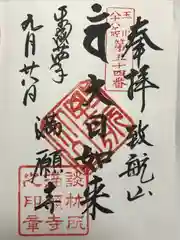 奉拝 致航山
玉川
八十八ヶ所
第五十四番
大日如来
満願寺
九月廿八日
談林所
満願寺
之印章